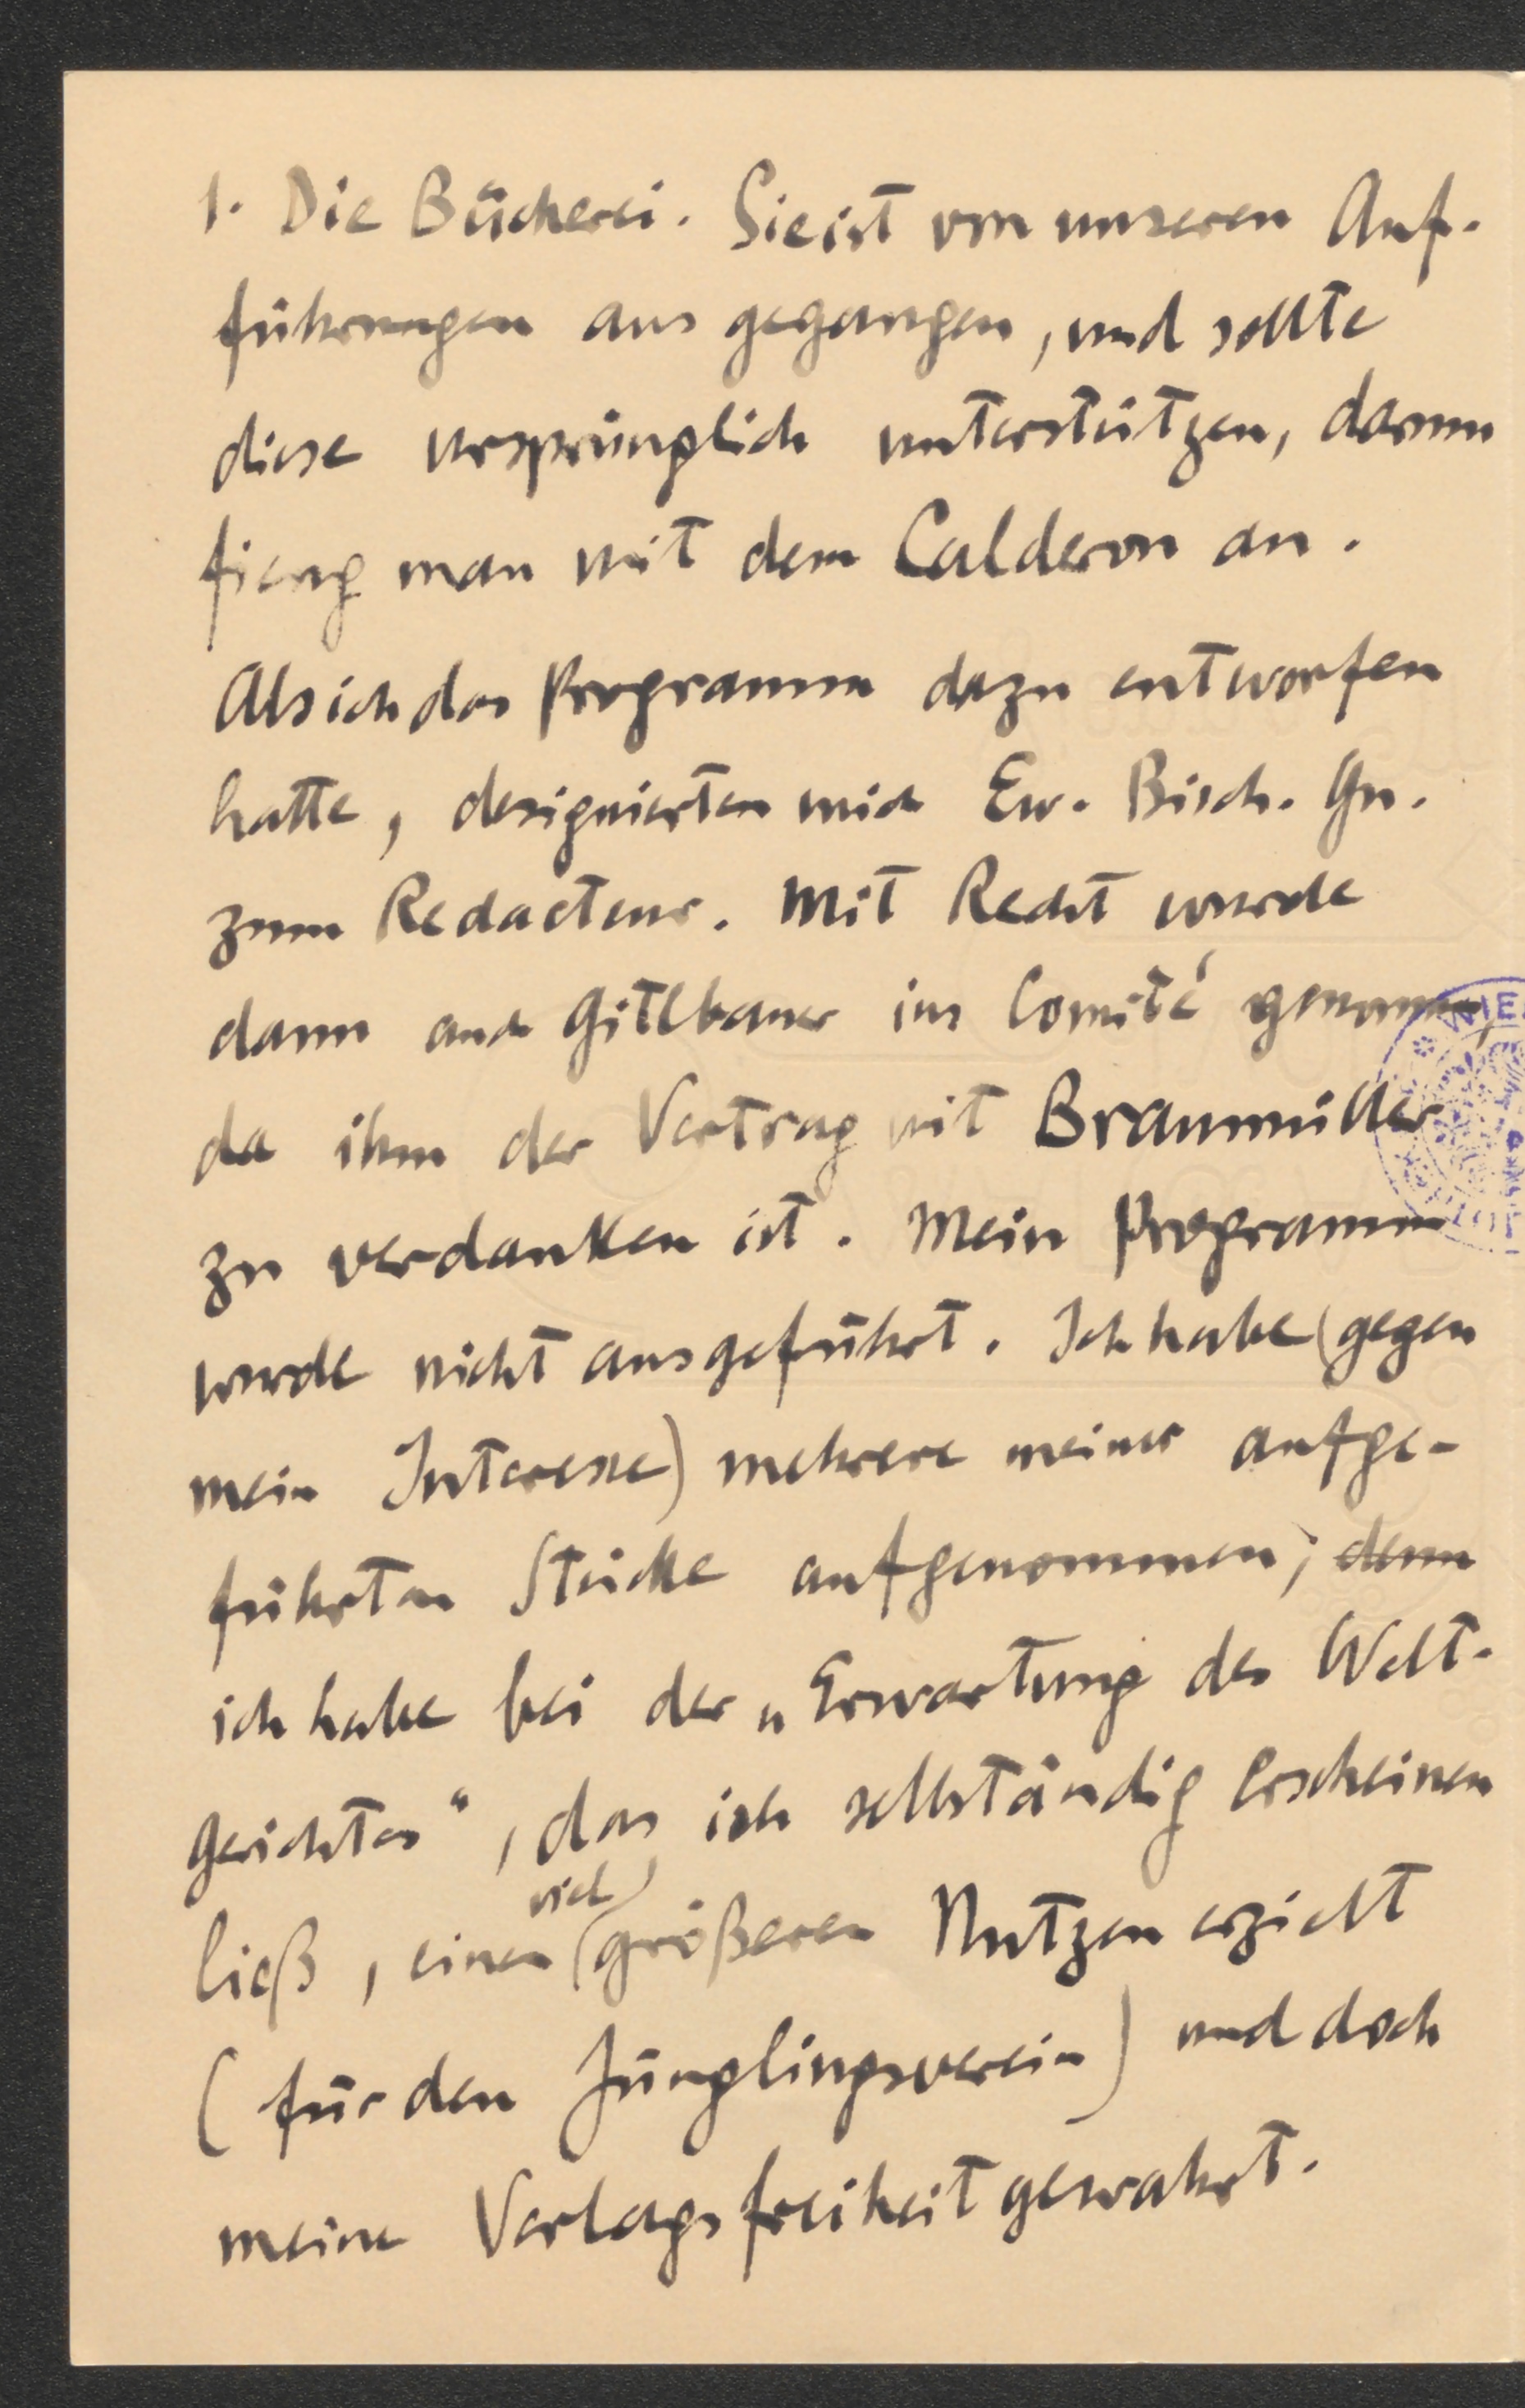 1. Die Bücherei. Sie ist von unseren Auf-
führungen aus gegangen, und sollte
diese ursprünglich unterstützen, darum
fieng man mit dem Calderon an.
Als ich das Programm dazu entworfen
hatte, designierten mich Ew. Bisch. Gn.
zum Redacteur. Mit Recht wurde
dann auch Gitlbauer ins Comité genommen,
da ihm der Vertrag mit Braumüller
zu verdanken ist. Mein Programm
wurde nicht ausgeführt. Ich habe (gegen
mein Interesse) mehrere meiner aufge-
führten Stücke aufgenommen; denn
ich habe bei der „Erwartung des Welt-
gerichtes“, das ich selbständig erscheinen
viel
ließ, einen größeren Nutzen erzielt
(für den Jünglingsverein) und doch
meine Verlagsfreiheit gewahrt.
WIE